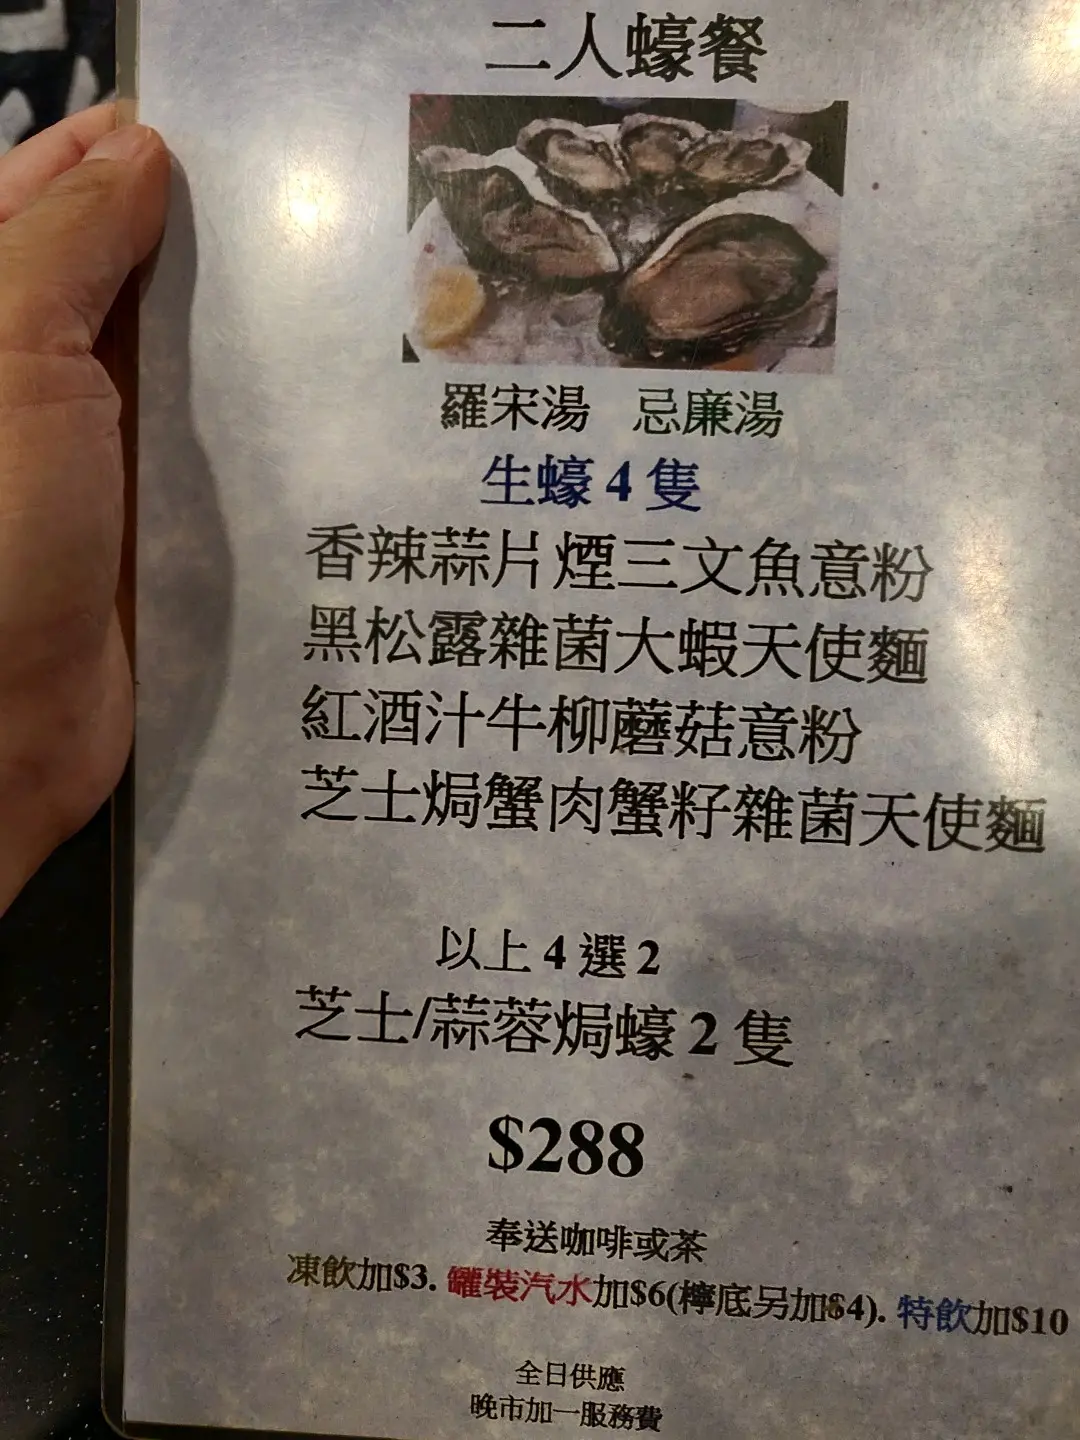 二人蠔餐
羅宋湯 忌廉湯
生蠔 4 隻
香辣蒜片煙三文魚意粉
黑松露雜菌大蝦天使麵
紅酒汁牛柳蘑菇意粉
芝士焗蟹肉蟹籽雜菌天使麵
以上 4 選 2
芝士/蒜蓉焗蠔 2 隻
$288
奉送咖啡或茶
凍飲加$3. 罐裝汽水加$6(檸底另加$4). 特飲加$10
全日供應
晚市加一服務費